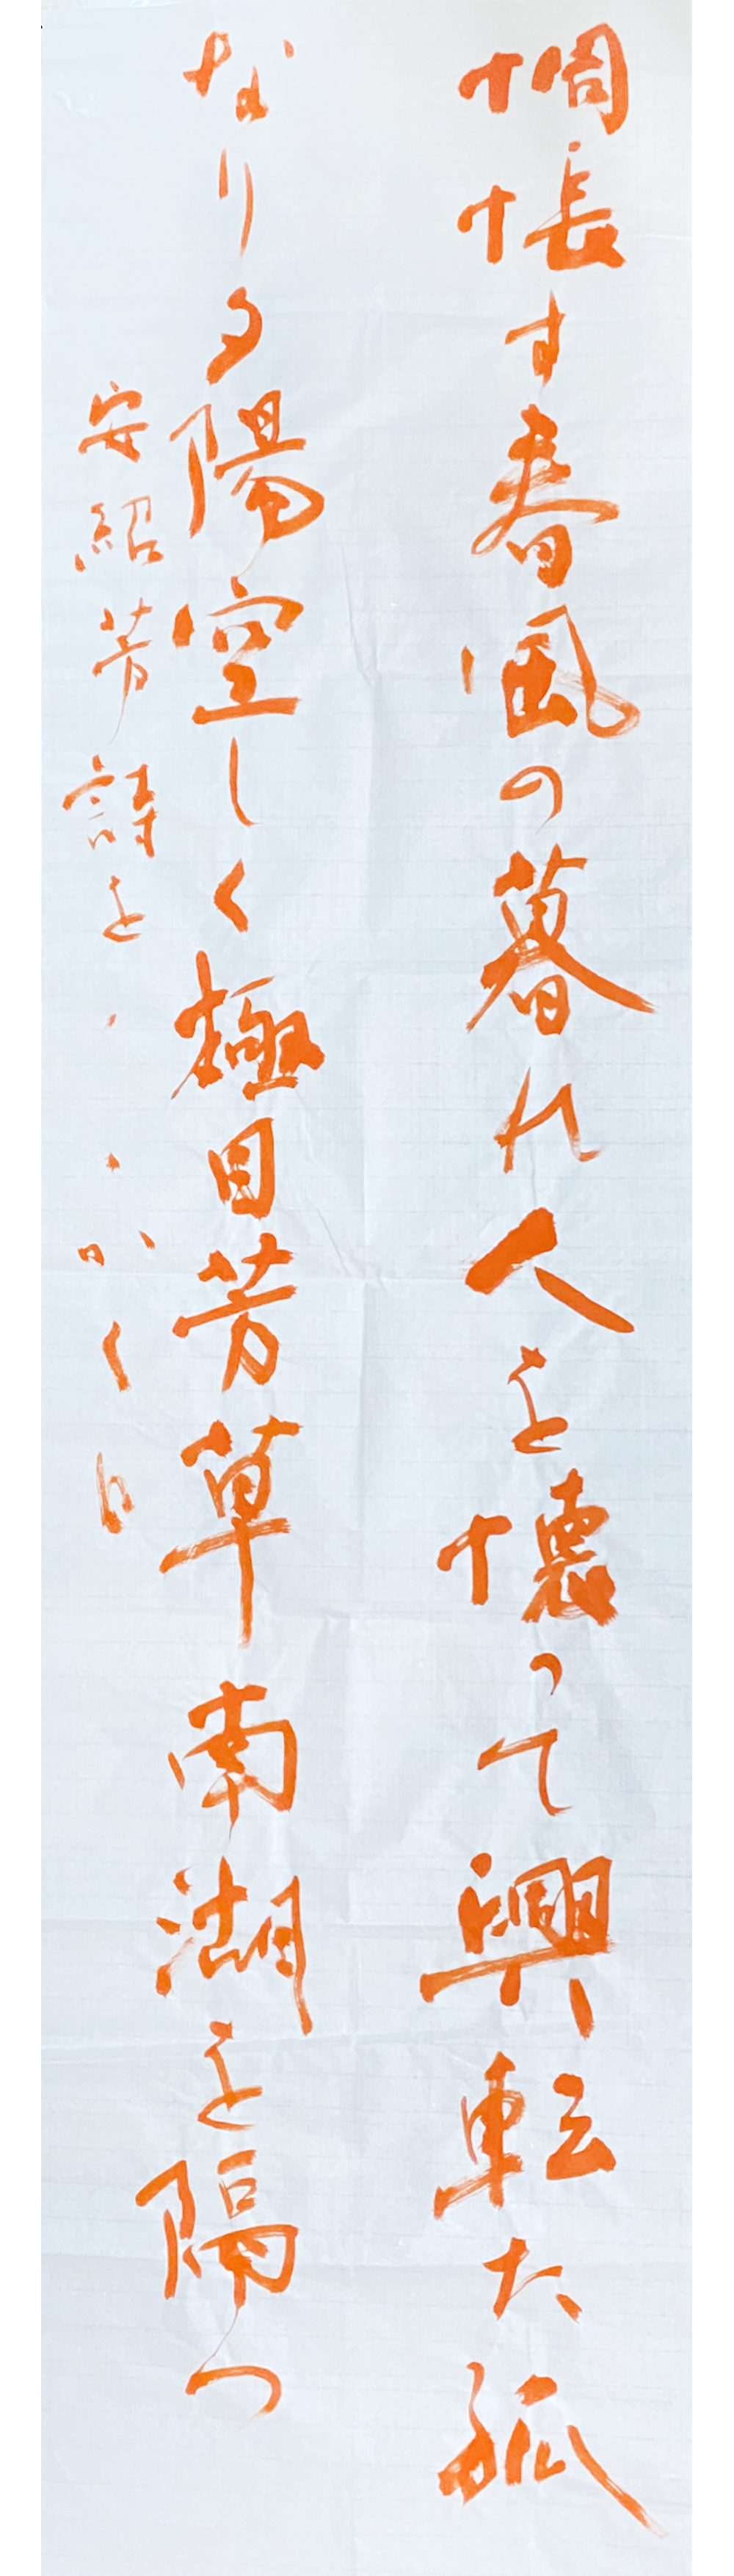 惆悵す春風の暮れ人を懐って興転た孤
なり夕陽空しく極目芳草南湖を隔つ
安紹芳詩を